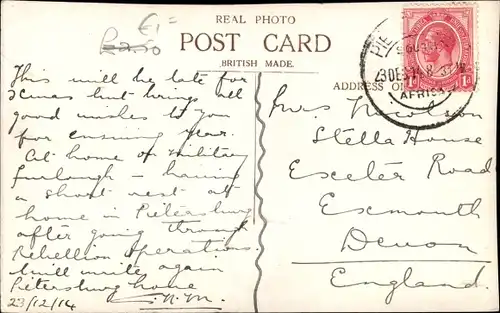 €1=
R2.50
REAL PHOTO
POST CARD
BRITISH MADE.
ADDRESS
23 DE 14
AFRICA
This will be late for
Xmas but brings all
good wishes to you
for ensuing year.
At home on military
furlough – having
a short rest at
home in Pietersburg
after going through
Rebellion operations.
Will write again
Pietersburg home
23/12/14
Mrs Nicolson
Stella House
Exeter Road
Exmouth
Devon
England.